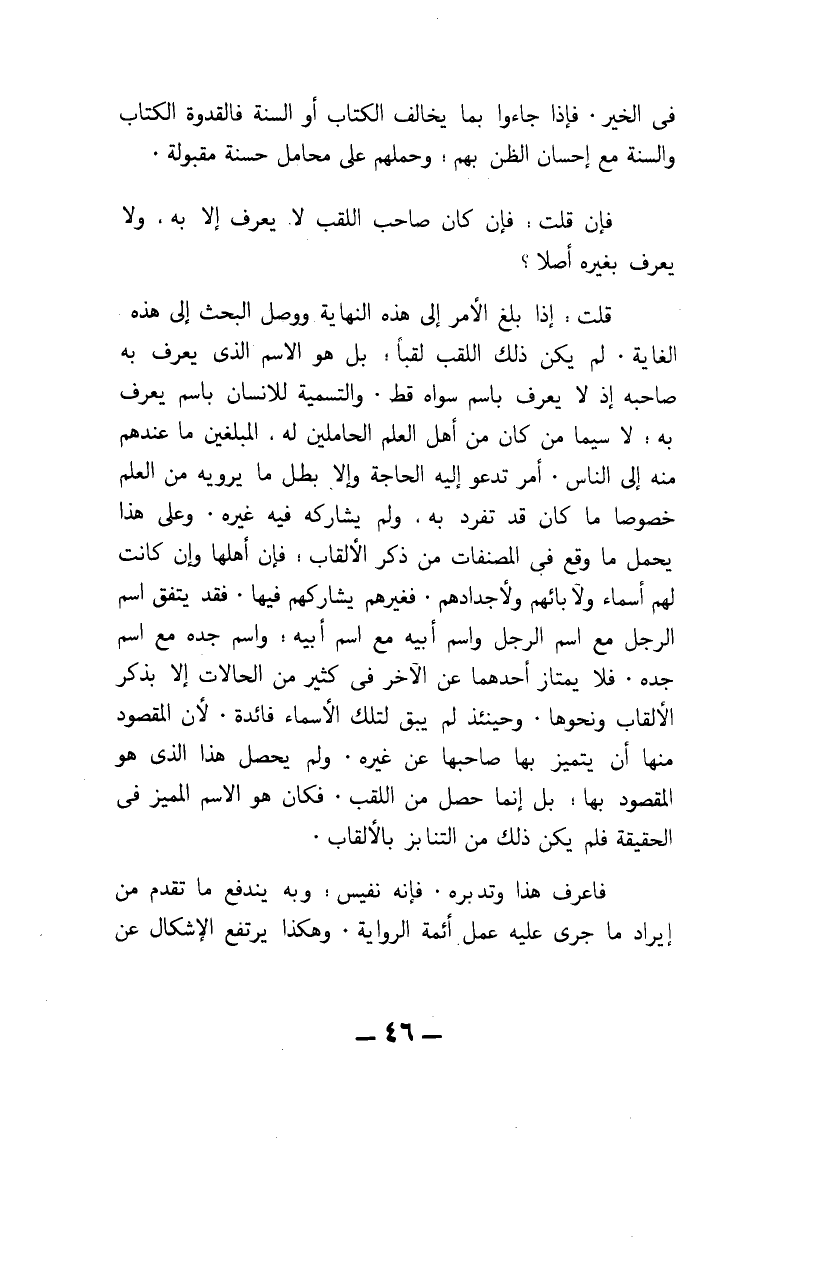 فى الخير · فإذا جاءوا بما يخالف الكتاب أو السنة فالقدوة الكتاب
والسنة مع إحسان الظن بهم ؛ وحملهم على محامل حسنة مقبولة ·
فإن قلت : فإن كان صاحب اللقب لا يعرف إلا به ، ولا
يعرف بغيره أصلا ؟
قلت : إذا بلغ الأمر إلى هذه النهاية ووصل البحث إلى هذه
الغاية · لم يكن ذلك اللقب لقباً ؛ بل هو الاسم الذى يعرف به
صاحبه إذ لا يعرف باسم سواه قط · والتسمية للانسان باسم يعرف
به ؛ لا سيما من كان من أهل العلم الحاملين له ، المبلغين ما عندهم
منه إلى الناس · أمر تدعو إليه الحاجة وإلا بطل ما يرويه من العلم
خصوصا ما كان قد تفرد به ، ولم يشاركه فيه غيره · وعلى هذا
يحمل ما وقع فى المصنفات من ذكر الألقاب ؛ فإن أهلها وإن كانت
لهم أسماء ولآبائهم ولأجدادهم · فغيرهم يشاركهم فيها · فقد يتفق اسم
الرجل مع اسم الرجل واسم أبيه مع اسم أبيه ؛ واسم جده مع اسم
جده · فلا يمتاز أحدهما عن الآخر فى كثير من الحالات إلا بذكر
الألقاب ونحوها · وحينئذ لم يبق لتلك الأسماء فائدة · لأن المقصود
منها أن يتميز بها صاحبها عن غيره · ولم يحصل هذا الذى هو
المقصود بها ؛ بل إنما حصل من اللقب · فكان هو الاسم المميز فى
الحقيقة فلم يكن ذلك من التنابز بالألقاب ·
فاعرف هذا وتدبره · فإنه نفيس ؛ وبه يندفع ما تقدم من
إيراد ما جرى عليه عمل أئمة الرواية · وهكذا يرتفع الإشكال عن
— ٤٦ —